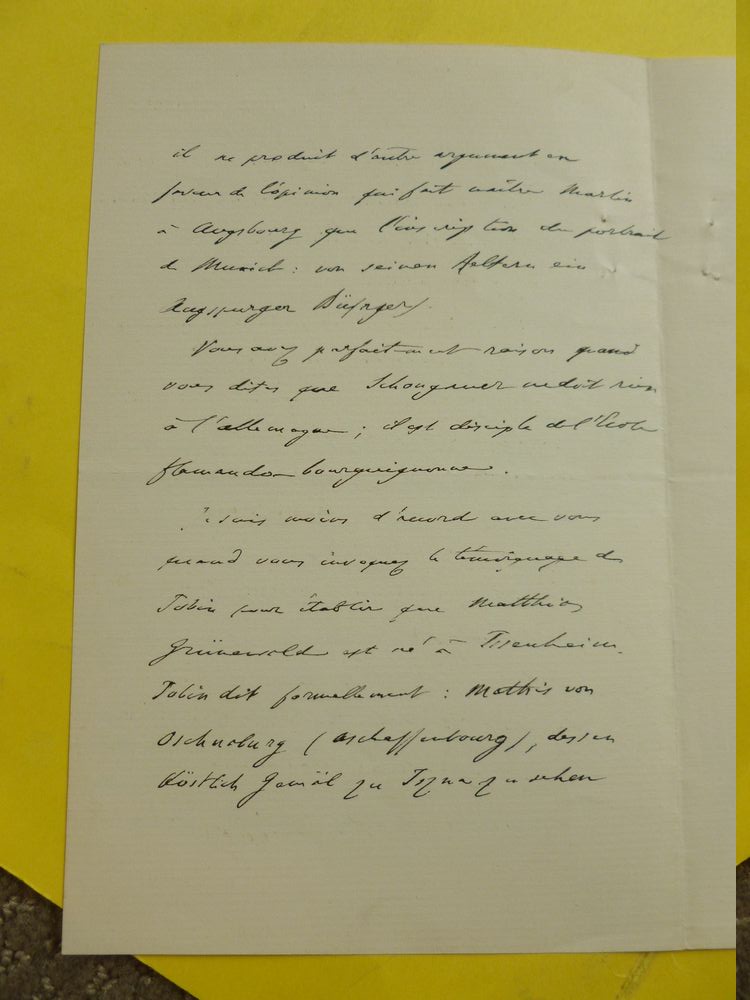 il ne produit d'autre argument en
faveur de l'opinion qui fait naître Martin
à Augsbourg que l'inscription du portrait
de Munich : von seinen Aeltern ein
Augspurger Bürger.
Vous avez parfaitement raison quand
vous dites que Schongauer ne doit rien
à l'allemagne ; il est disciple de l'École
flamando-bourguignonne.
Je suis moins d'accord avec vous
quand vous invoquez le témoignage de
Jobin pour établir que Matthias
Grünewald est né à Issenheim.
Jobin dit formellement : Mathis von
Oschnaburg (Aschaffenbourg), dessen
köstlich Gemäl zu Iszna zu sehen